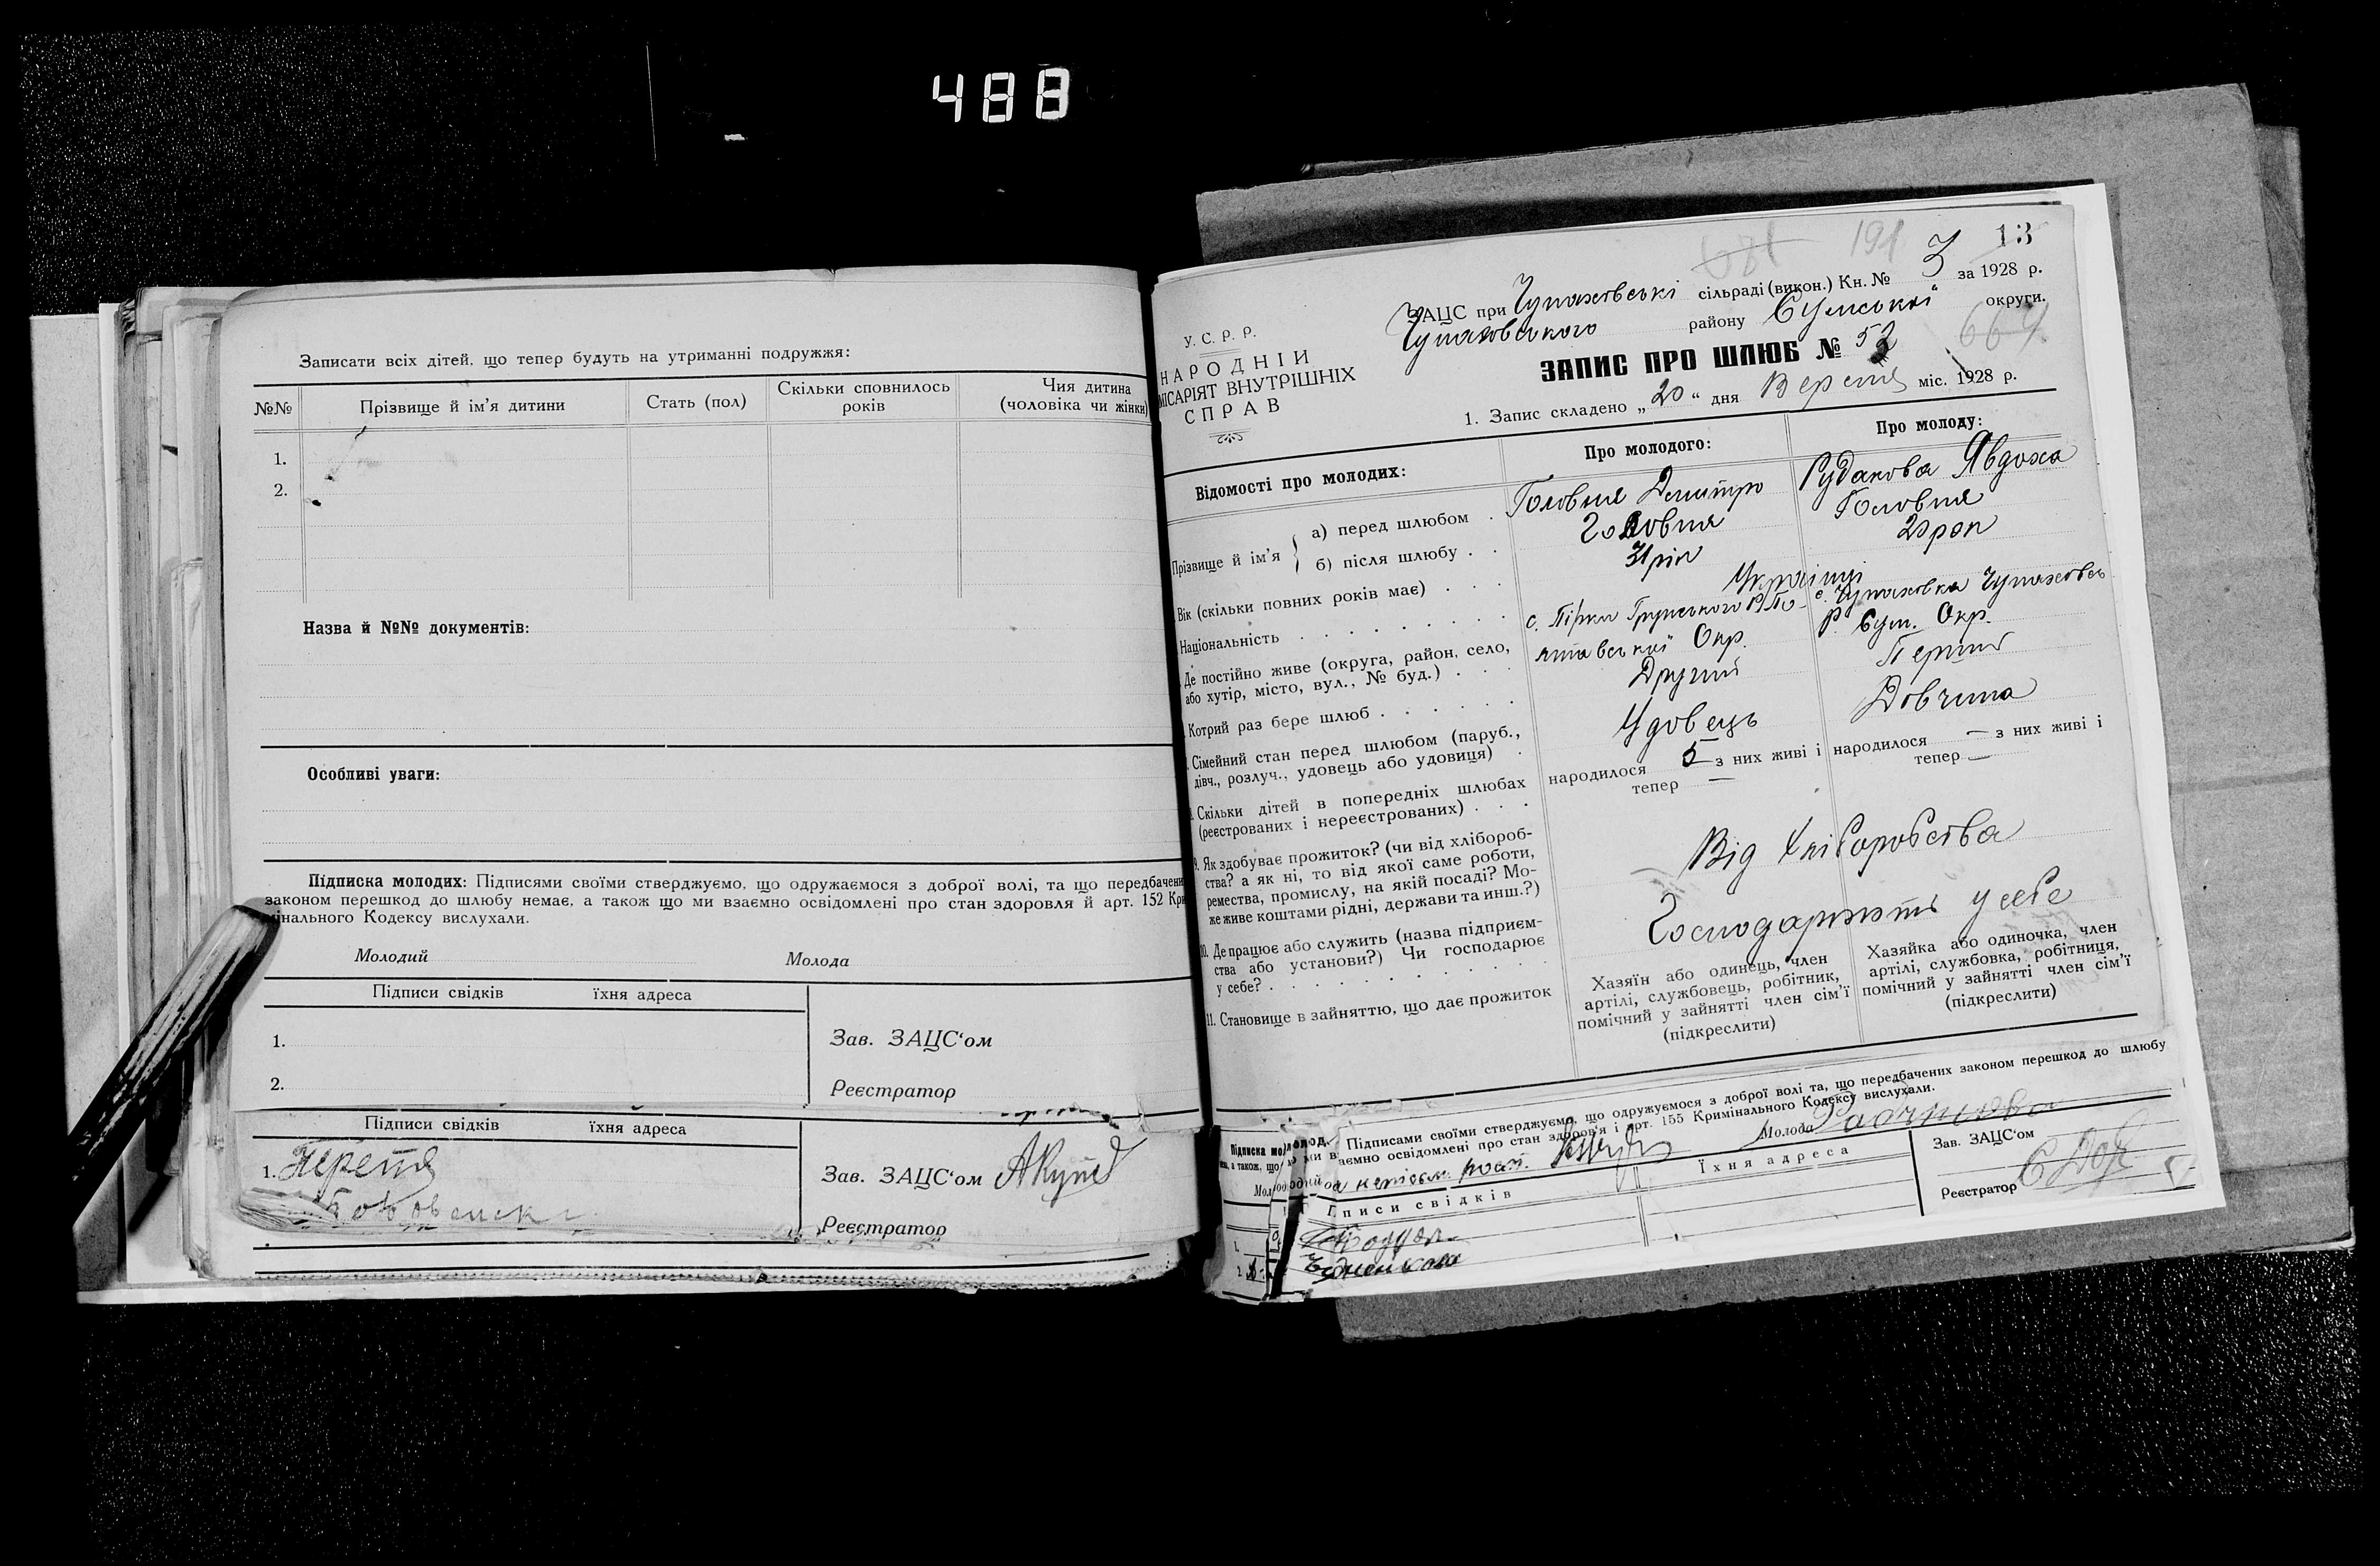 488
Записати всіх дітей, що тепер будуть на утриманні подружжя:
№№ Прізвище й ім'я дитини Стать (пол) Скільки сповнилось років Чия дитина (чоловіка чи жінки)
1.
2.
Назва й №№ документів:
Особливі уваги:
Підписка молодих: Підписями своїми стверджуємо, що одружаємося з доброї волі, та що передбачени
законом перешкод до шлюбу немає, а також що ми взаємно освідомлені про стан здоровля й арт. 152 Кри
мінального Кодексу вислухали.
Молодий Молода
Підписи свідків їхня адреса
1.
2.
Зав. ЗАЦС'ом
Реєстратор
Підписи свідків їхня адреса
1.
Зав. ЗАЦС'ом
Реєстратор
У.С.Р.Р.
НАРОДНІЙ
МІСАРІЯТ ВНУТРІШНІХ
СПРАВ
191 13
ЗАЦС при Чупаховські сільраді (викон.) Кн. № 3 за 1928 р.
Чупаховського району Сумської округи.
669
ЗАПИС ПРО ШЛЮБ № 52
1. Запис складено „20" дня Вересня міс. 1928 р.
Відомості про молодих: Про молодого: Про молоду:
Прізвище й ім'я
а) перед шлюбом . Головня Дмитро Рудакова Явдоха
б) після шлюбу . . Головня Головня
Вік (скільки повних років має) . . . 31 рік 20 рок
Національність . . . . . . . . . Українці
Де постійно живе (округа, район, село,
або хутір, місто, вул., № буд.) . . .
с. Пірки Грунського Р. По-
лтавської Окр.
с. Чупаховка Чупаховсь
Р. Сум. Окр.
Котрий раз бере шлюб . . . . . . Другий Перший
Сімейний стан перед шлюбом (паруб.,
дівч., розлуч., удовець або удовиця) .
Удовець Дівчина
Скільки дітей в попередніх шлюбах
(реєстрованих і нереєстрованих) . . .
народилося 5 з них живі і
тепер —
народилося — з них живі і
тепер —
9. Як здобуває прожиток? (чи від хлібороб-
ства? а як ні, то від якої саме роботи,
ремества, промислу, на якій посаді? Мо-
же живе коштами рідні, держави та инш.?)
Від хліборобства
10. Де працює або служить (назва підприєм-
ства або установи?) Чи господарює
у себе? . . . . . . . . . . .
Господарюють у себе
11. Становище в зайняттю, що дає прожиток
Хазяїн або одинець, член
артілі, службовець, робітник,
помічний у зайнятті член сім'ї
(підкреслити)
Хазяйка або одиночка, член
артілі, службовка, робітниця,
помічний у зайнятті член сім'ї
(підкреслити)
Підписами своїми стверджуємо, що одружуємося з доброї волі та, що передбачених законом перешкод до шлюбу
аємно освідомлені про стан здоров'я і арт. 155 Кримінального Кодексу вислухали.
Молода
писи свідків Їхня адреса
Зав. ЗАЦС'ом
Реєстратор